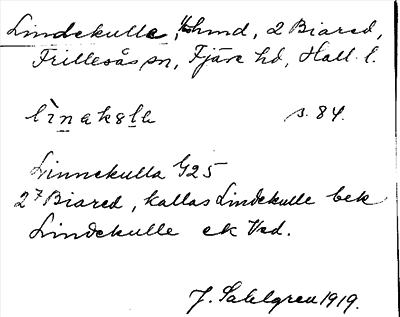 Lindekulle, lhmd, 2 Biared,
Frillesås sn, Fjäre hd, Hall. l.
s. 84.
Linnekulla G25
27 Biared, kallas Lindekulle bek
Lindekulle ek Ved.
J. Sahlgren 1919.